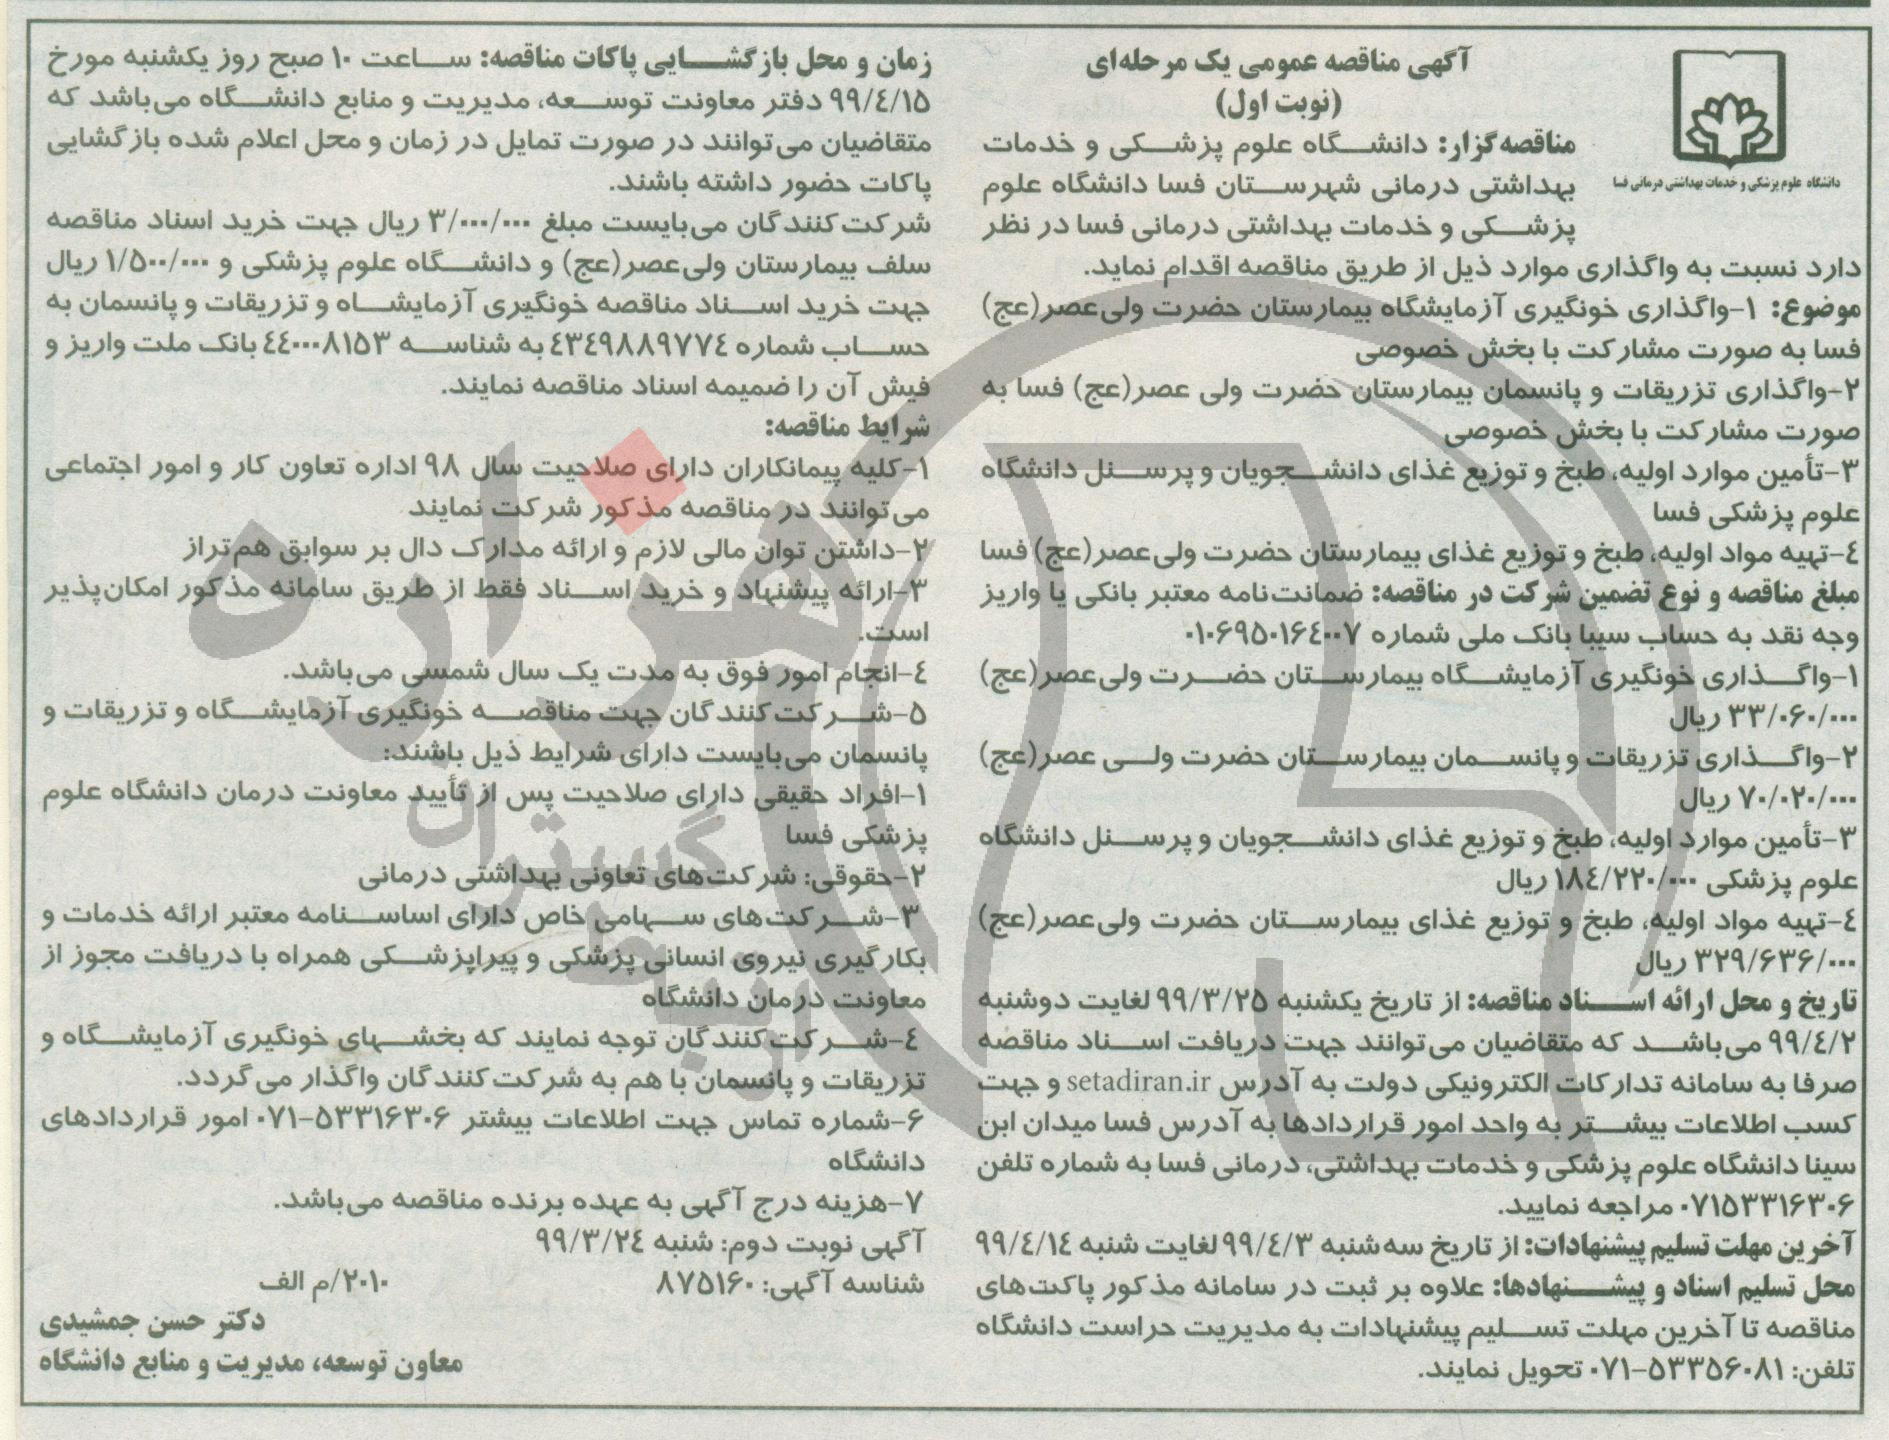 دانشگاه علوم پزشکی و خدمات بهداشتی درمانی فسا
آگهی مناقصه عمومی یک مرحله‌ای
(نوبت اول)
مناقصه‌گزار: دانشگاه علوم پزشکی و خدمات
بهداشتی درمانی شهرستان فسا دانشگاه علوم
پزشکی و خدمات بهداشتی درمانی فسا در نظر
دارد نسبت به واگذاری موارد ذیل از طریق مناقصه اقدام نماید.
موضوع: ۱-واگذاری خونگیری آزمایشگاه بیمارستان حضرت ولی‌عصر(عج)
فسا به صورت مشارکت با بخش خصوصی
۲-واگذاری تزریقات و پانسمان بیمارستان حضرت ولی عصر(عج) فسا به
صورت مشارکت با بخش خصوصی
۳-تأمین موارد اولیه، طبخ و توزیع غذای دانشجویان و پرسنل دانشگاه
علوم پزشکی فسا
۴-تهیه مواد اولیه، طبخ و توزیع غذای بیمارستان حضرت ولی‌عصر(عج) فسا
مبلغ مناقصه و نوع تضمین شرکت در مناقصه: ضمانت‌نامه معتبر بانکی یا واریز
وجه نقد به حساب سیبا بانک ملی شماره ۰۱۰۶۹۵۰۱۶۴۰۰۷
۱-واگذاری خونگیری آزمایشگاه بیمارستان حضرت ولی‌عصر(عج)
۳۳/۰۶۰/۰۰۰ ریال
۲-واگذاری تزریقات و پانسمان بیمارستان حضرت ولی عصر(عج)
۷۰/۰۲۰/۰۰۰ ریال
۳-تأمین موارد اولیه، طبخ و توزیع غذای دانشجویان و پرسنل دانشگاه
علوم پزشکی ۱۸۴/۲۲۰/۰۰۰ ریال
۴-تهیه مواد اولیه، طبخ و توزیع غذای بیمارستان حضرت ولی‌عصر(عج)
۳۲۹/۶۳۶/۰۰۰ ریال
تاریخ و محل ارائه اسناد مناقصه: از تاریخ یکشنبه ۹۹/۳/۲۵ لغایت دوشنبه
۹۹/۴/۲ می‌باشد که متقاضیان می‌توانند جهت دریافت اسناد مناقصه
صرفا به سامانه تدارکات الکترونیکی دولت به آدرس setadiran.ir و جهت
کسب اطلاعات بیشتر به واحد امور قراردادها به آدرس فسا میدان ابن
سینا دانشگاه علوم پزشکی و خدمات بهداشتی، درمانی فسا به شماره تلفن
۰۷۱۵۳۳۱۶۳۰۶ مراجعه نمایید.
آخرین مهلت تسلیم پیشنهادات: از تاریخ سه‌شنبه ۹۹/۴/۳ لغایت شنبه ۹۹/۴/۱۴
محل تسلیم اسناد و پیشنهادها: علاوه بر ثبت در سامانه مذکور پاکت‌های
مناقصه تا آخرین مهلت تسلیم پیشنهادات به مدیریت حراست دانشگاه
تلفن: ۵۳۳۵۶۰۸۱-۰۷۱ تحویل نمایند.
زمان و محل بازگشایی پاکات مناقصه: ساعت ۱۰ صبح روز یکشنبه مورخ
۹۹/۴/۱۵ دفتر معاونت توسعه، مدیریت و منابع دانشگاه می‌باشد که
متقاضیان می‌توانند در صورت تمایل در زمان و محل اعلام شده بازگشایی
پاکات حضور داشته باشند.
شرکت‌کنندگان می‌بایست مبلغ ۳/۰۰۰/۰۰۰ ریال جهت خرید اسناد مناقصه
سلف بیمارستان ولی‌عصر(عج) و دانشگاه علوم پزشکی و ۱/۵۰۰/۰۰۰ ریال
جهت خرید اسناد مناقصه خونگیری آزمایشاه و تزریقات و پانسمان به
حساب شماره ۴۳۴۹۸۸۹۷۷۴ به شناسه ۴۴۰۰۰۸۱۵۳ بانک ملت واریز و
فیش آن را ضمیمه اسناد مناقصه نمایند.
شرایط مناقصه:
۱-کلیه پیمانکاران دارای صلاحیت سال ۹۸ اداره تعاون کار و امور اجتماعی
می‌توانند در مناقصه مذکور شرکت نمایند
۲-داشتن توان مالی لازم و ارائه مدارک دال بر سوابق هم‌تراز
۳-ارائه پیشنهاد و خرید اسناد فقط از طریق سامانه مذکور امکان‌پذیر
است.
۴-انجام امور فوق به مدت یک سال شمسی می‌باشد.
۵-شرکت‌کنندگان جهت مناقصه خونگیری آزمایشگاه و تزریقات و
پانسمان می‌بایست دارای شرایط ذیل باشند:
۱-افراد حقیقی دارای صلاحیت پس از تأیید معاونت درمان دانشگاه علوم
پزشکی فسا
۲-حقوقی: شرکت‌های تعاونی بهداشتی درمانی
۳-شرکت‌های سهامی خاص دارای اساسنامه معتبر ارائه خدمات و
بکارگیری نیروی انسانی پزشکی و پیراپزشکی همراه با دریافت مجوز از
معاونت درمان دانشگاه
۴-شرکت‌کنندگان توجه نمایند که بخشهای خونگیری آزمایشگاه و
تزریقات و پانسمان با هم به شرکت‌کنندگان واگذار می‌گردد.
۶-شماره تماس جهت اطلاعات بیشتر ۵۳۳۱۶۳۰۶-۰۷۱ امور قراردادهای
دانشگاه
۷-هزینه درج آگهی به عهده برنده مناقصه می‌باشد.
آگهی نوبت دوم: شنبه ۹۹/۳/۲۴
شناسه آگهی: ۸۷۵۱۶۰ ۲۰۱۰/م الف
دکتر حسن جمشیدی
معاون توسعه، مدیریت و منابع دانشگاه